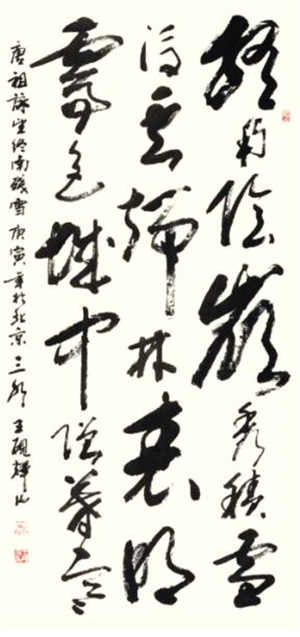 終南陰嶺秀積雪
浮云端林表明
霽色城中增暮寒
唐祖詠望終南殘雪庚寅年於北京